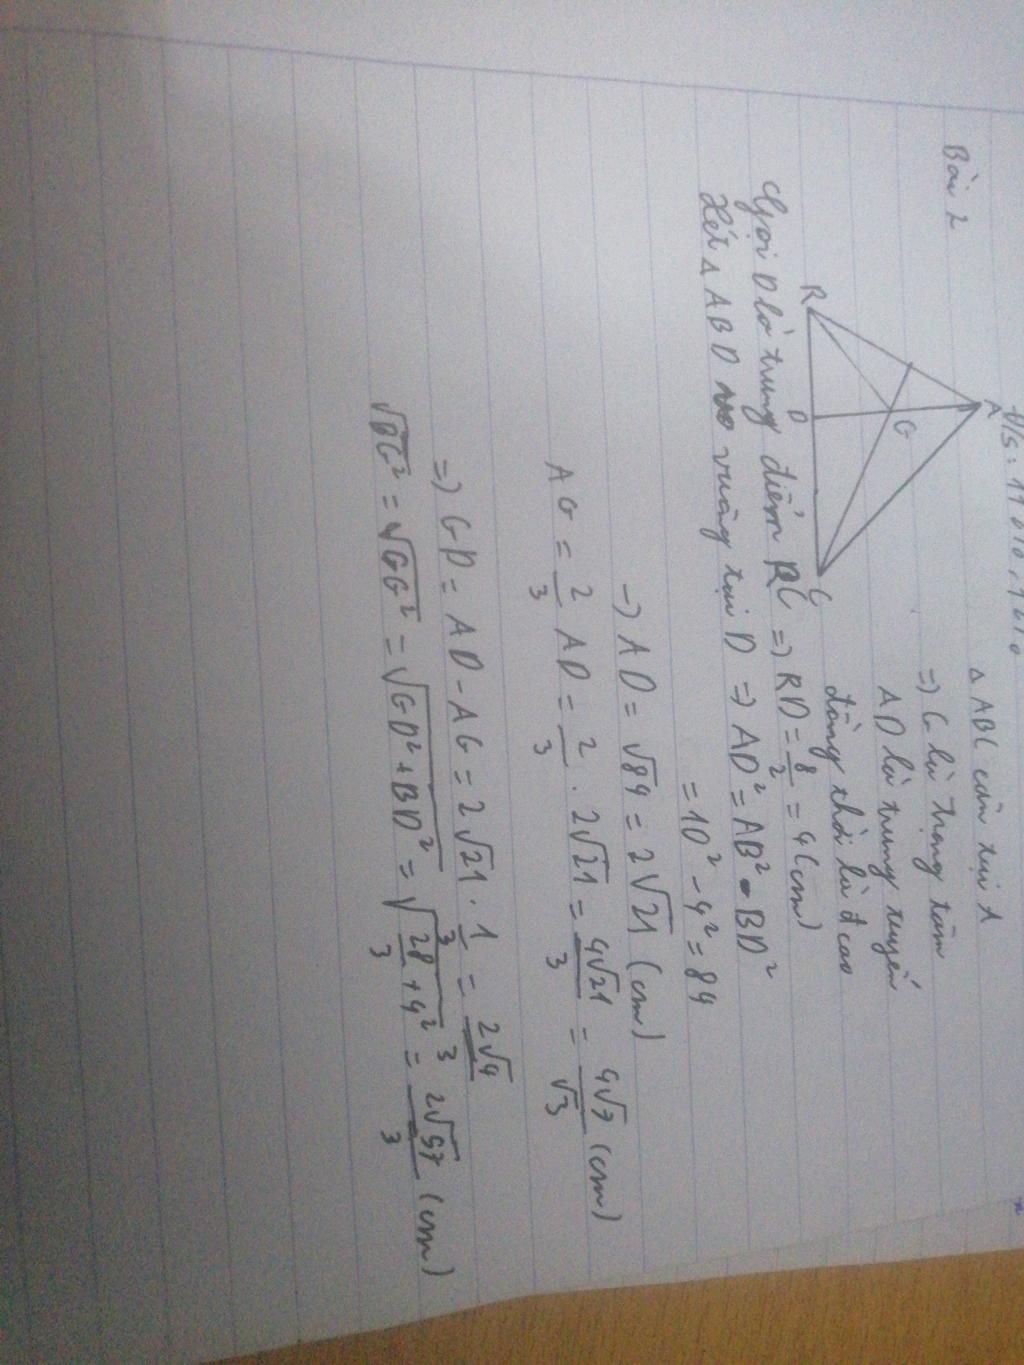 Đ/s:
Bài 2
A
B
D
C
G
Δ ABC cân tại A
=) G là trọng tâm
AD là trung tuyến
đồng thời là đ cao
Gọi D là trung điểm BC =) BD = 8/2 = 4(cm)
Xét Δ ABD vuông tại D =) AD² = AB² - BD²
= 10² - 4² = 84
-) AD = √84 = 2√21 (cm)
AG = 2/3 AD = 2/3 . 2√21 = 4√21/3 = 4√7/√3 (cm)
=) GD = AD - AG = 2√21 . 1/3 = 2√7/3
√BG² = √GG² = √GD² + BD² = √28/3 + 4² = 2√57/3 (cm)